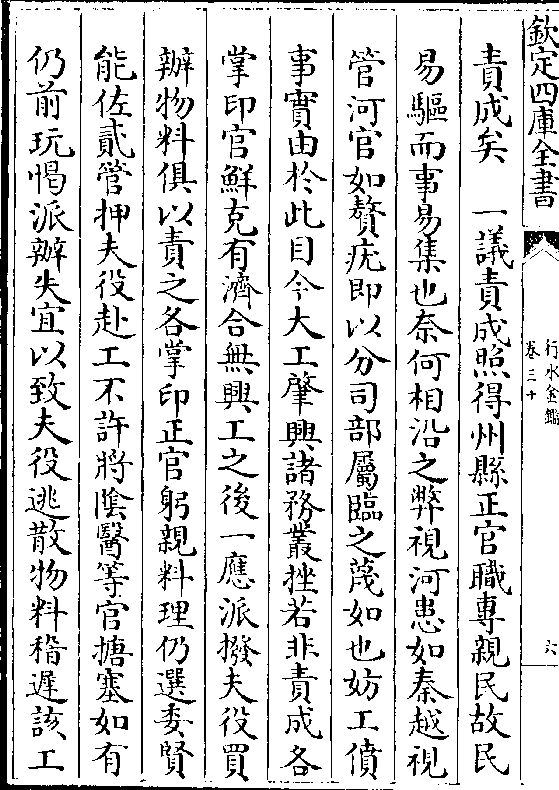 欽定四庫全書
行水金鑑
卷三十
六
責成矣　一議責成照得州縣正官職專親民故民
易驅而事易集也奈何相沿之弊視河患如秦越視
管河官如贅疣即以分司部屬臨之蔑如也妨工僨
事實由於此目今大工肇興諸務叢挫若非責成各
掌印官鮮克有濟合無興工之後一應派撥夫役買
辦物料俱以責之各掌印正官躬親料理仍選委賢
能佐貳管押夫役赴工不許將陰醫等官搪塞如有
仍前玩愒派辦失宜以致夫役逃散物料稽遲該工